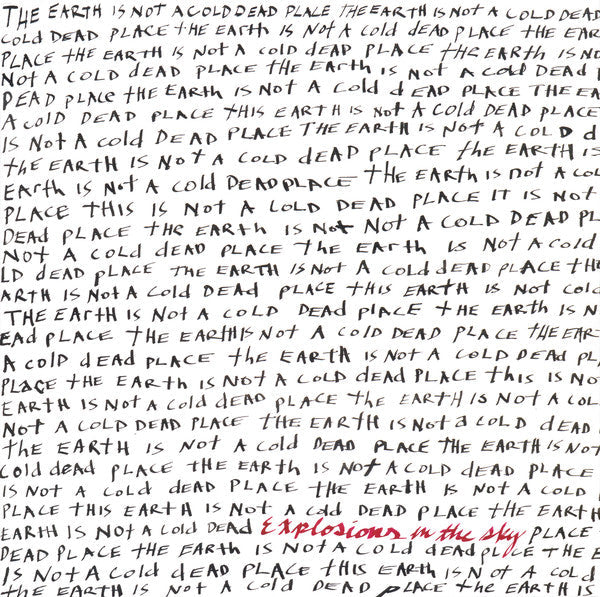 THE EARTH IS NOT A COLD DEAD PLACE THE EARTH IS NOT A COLD DEAD
COLD DEAD PLACE THE EARTH IS NOT A COLD DEAD PLACE THE EAR
PLACE THE EARTH IS NOT A COLD DEAD PLACE THE EARTH IS NO
NOT A COLD DEAD PLACE THE EARTH IS NOT A COLD DEAD P
DEAD PLACE THE EARTH IS NOT A COLD DEAD PLACE THE EA
A COLD DEAD PLACE THIS EARTH IS NOT A COLD DEAD PLACE
IS NOT A COLD DEAD PLACE THE EARTH IS NOT A COLD D
THE EARTH IS NOT A COLD DEAD PLACE THE EARTH IS
EARTH IS NOT A COLD DEAD PLACE THE EARTH IS NOT A COL
PLACE THIS IS NOT A COLD DEAD PLACE IT IS NOT
DEAD PLACE THE EARTH IS NOT NOT A COLD DEAD PL
NOT A COLD DEAD PLACE THE EARTH IS NOT A COLD
LD DEAD PLACE THE EARTH IS NOT A COLD DEAD PLACE TH
ARTH IS NOT A COLD DEAD PLACE THIS EARTH IS NOT COLD
THE EARTH IS NOT A COLD DEAD PLACE THE EARTH IS N
EAD PLACE THE EARTH IS NOT A COLD DEAD PLACE THE EAR
A COLD DEAD PLACE THE EARTH IS NOT A COLD DEAD PL
PLACE THE EARTH IS NOT A COLD DEAD PLACE THIS IS NO
EARTH IS NOT A COLD DEAD PLACE THE EARTH IS NOT A COL
NOT A COLD DEAD PLACE THE EARTH IS NOT A COLD DEAD
THE EARTH IS NOT A COLD DEAD PLACE THE EARTH IS NOT
COLD DEAD PLACE THE EARTH IS NOT A COLD DEAD PLACE
IS NOT A COLD DEAD PLACE THE EARTH IS NOT A COLD
PLACE THIS EARTH IS NOT A COLD DEAD PLACE THE EARTH
EARTH IS NOT A COLD DEAD Explosions in the sky PLACE
DEAD PLACE THE EARTH IS NOT A COLD DEAD PLACE THE E
IS NOT A COLD DEAD PLACE THIS EARTH IS NOT A COLD
THE EARTH IS NOT A COLD DEAD PLACE THE EARTH IS